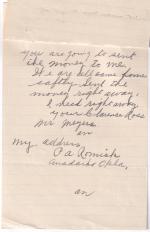 you are going to sent
the money to me,
We are all same home
safthy sent the
money right away,
I need right away
your Clarence Ross
Mr Meyers
an
My address,
P a Romish
Anadarko Okla,
an